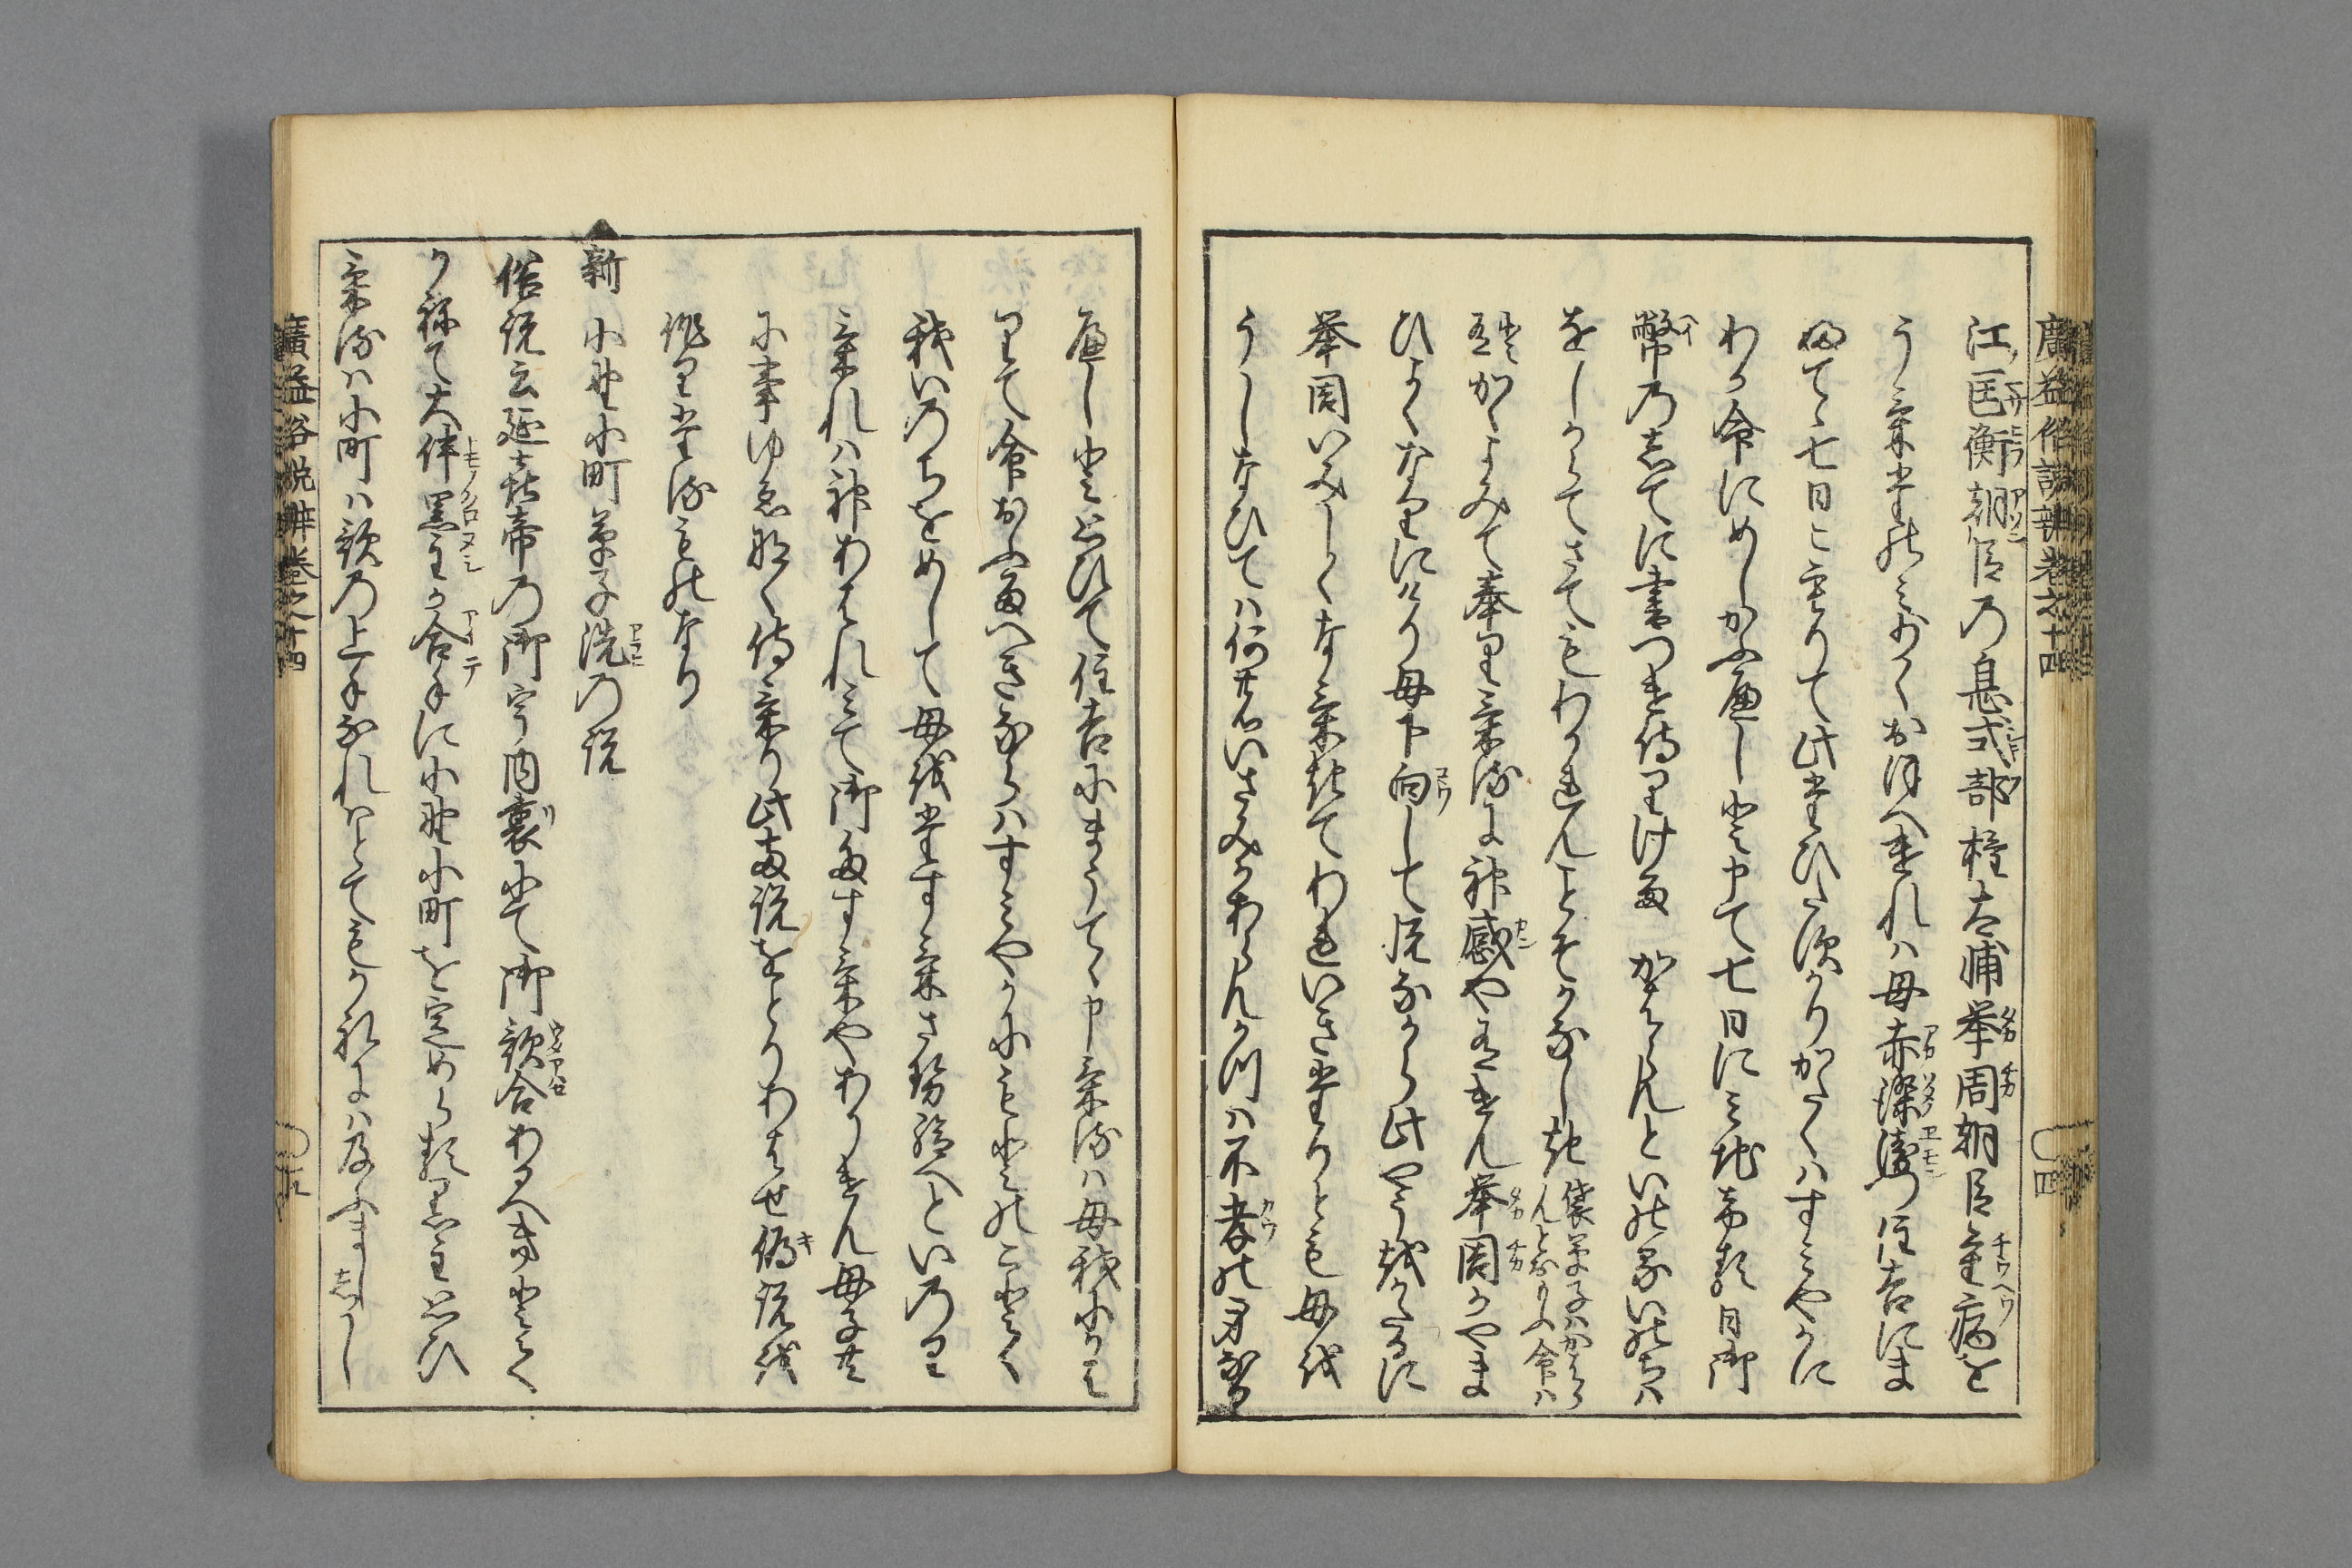 廣益俗説辨卷之十四
江匡衡朝臣の息式部權大輔擧周朝臣重病を
うけたのみすくなくおほへけれは母赤染衛門住吉にま
ふてゝ七日こもりて此たひたすかりかたくはすみやかに
わか命にめしかふへしと申て七日にみちける日御
幣のしてに書つけ侍りける かはらんといのる命はをしからて
さてもわかれんことそかなしき
かくよみて奉りけるに神感やありけん擧周かやま
ひよくなりにけり母下向して悦なから此やうをかたるに
擧周いみしくなけきてわれいきたりとも母を
うしなひては何のいさみかあらんかつは不孝の身なる
へしと思ひて住吉にまうてゝ申けるは母我にかは
りて命おふへきならはすみやかにもとのことく
我いのちをめして母をたすけさせ給へといのり
けれは神あはれみて御たすけやありけん母子共
に事ゆゑなく侍けり此両説をとりあはせ偽説を
作りたるものなり
新 小野小町草子洗の説
俗説云延喜帝の御宇内裏にて御歌合あるへきとて
かねて大伴黒主か合手に小野小町を定めらる黒主思ひ
けるは小町は歌の上手なれはとてもかれには及ふましし
廣益俗説辨卷之十四